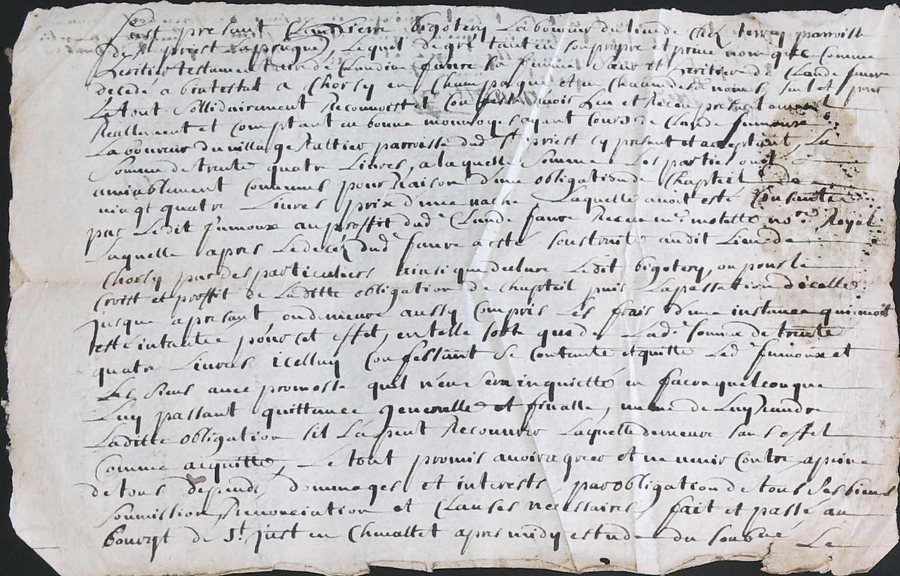 fust presant Pierre bigotery Laboureur du lieu de Chez terray parroisse
de St priest laprugne, Lequel de gré tant en son propre et privé nom que Comme
heritier testamentaire de Claudine favre sa femme Sœur et heritiere de Claude favre
decede abintestat a Chorsy en Champagne et en Chacun des noms, seul et pour
Le tout sollidairement Recounoist et Confesse avoir Heu et Receu presantement
Reallement et Comptant en bonne monnoye ayant Cours de Claude fumoux
Laboureur du village parroisse dud' St priest cy present et acceptant, La
Somme de trante quatre Livres, a laquelle Somme Les parties ont
amiablement Convenus pour Raison d'une obligation de Chapteil de
vingt quatre Livres prix d'une vache Laquelle avoit esté Consantie
par Ledit fumoux au proffit dud' Claude favre Receue me motette nore Royal
Laquelle apres Le decez dud' favre a esté soustraite audit Lieu de
Chorsy par des particuliers ainsi que declare Ledit bigotery, ou pour le
Croist et proffit de Laditte obligation de Chapteil puis La passation d'icelle
jusque a presant ou demeure aussy Compris Les frais d'une instance qui avoit
esté intantée pour cet effet, en telle sorte que de Lad' somme de trante
quatre Livres icelluy Confessant se contante et quitte Led' fumoux et
Les siens avec promesse quil n'en sera inquietté en facon quelconque
Luy passant quittance generalle et finalle, mesme de Luy randre
Laditte obligation sil La peut Recouvrer Laquelle demeure sans effet
Comme acquittée, Le tout promis avoir agreer et ne venir Contre a peine
de tous depends, dommages et interests par obligation de tous ses biens
soumission, Renonciation et Clauses necessaires, fait et passé au
bourgt de St just en Chevallet apres midy estude du soubzné Le